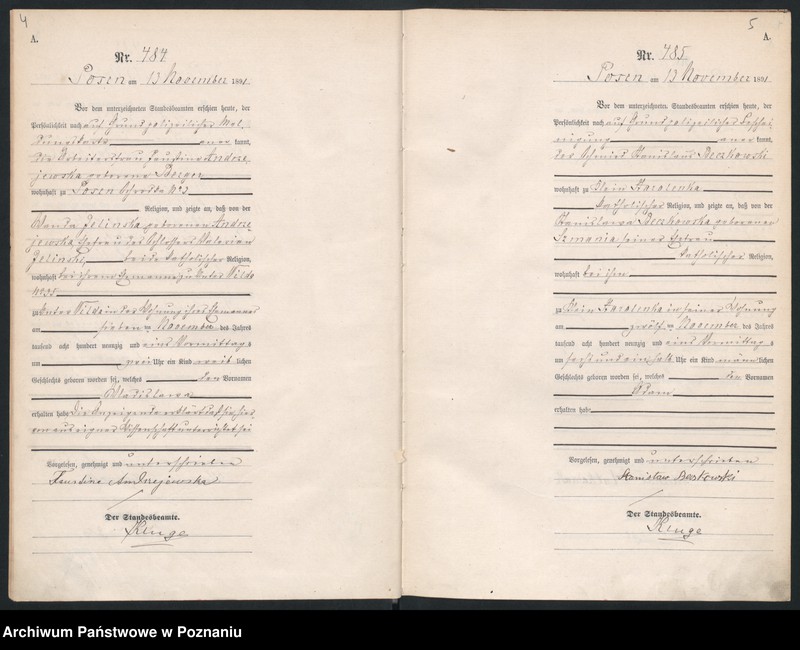 4
A.
Nr. 484.
Posen am 13 November 1891
Vor dem unterzeichneten Standesbeamten erschien heute, der
Persönlichkeit nach auf Grund polizeilicher Mel-
kannt,
die Arbeiterfrau Faustina Andrze-
jewska geborene Berger
wohnhaft zu Posen
Religion, und zeigte an, daß von der
Wanda Zelinska geborenen Andrze
jewska Ehefrau des Schlossers Valerian
Zelinski, beide katholischer Religion,
wohnhaft bei ihrem Ehemanne zu Unter Wilda
No 35
zu Unter Wilda in der Wohnung ihres Ehemannes
am sieben ten November des Jahres
tausend acht hundert neunzig und eins Vormittags
um zwei Uhr ein Kind weib lichen
Geschlechts geboren worden sei, welches den Vornamen
Wladislawa
erhalten habe Die Anzeigende erklärt daß sie hier
von aus eigner Wissenschaft unterrichtet sei
Vorgelesen, genehmigt und unterschrieben
Faustina Andrzejewska
Der Standesbeamte.
Kluge
5
A.
Nr. 485.
Posen am 13 November 1891
Vor dem unterzeichneten Standesbeamten erschien heute, der
Persönlichkeit nach auf Grund polizeilicher Beschei-
nigung kannt,
der Schmied Stanislaus Beszkowski
wohnhaft zu Klein Starolenka
katholischer Religion, und zeigte an, daß von der
Stanislawa Beszkowska geborenen
Szmania seiner Ehefrau
katholischer Religion,
wohnhaft bei ihm
zu Klein Starolenka in seiner Wohnung
am zwölf ten November des Jahres
tausend acht hundert neunzig und eins Vormittags
um sechs und ein halb Uhr ein Kind männ lichen
Geschlechts geboren worden sei, welches den Vornamen
Adam
erhalten habe
Vorgelesen, genehmigt und unterschrieben
Stanisław Beszkowski
Der Standesbeamte.
Kluge
Archiwum Państwowe w Poznaniu